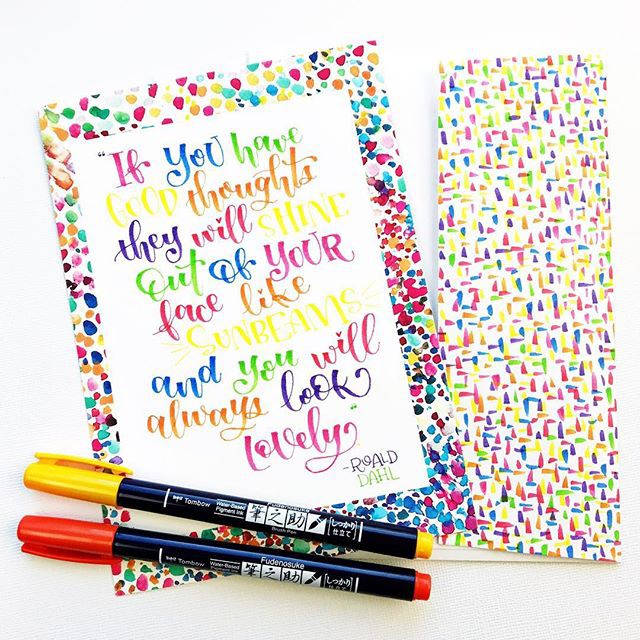 "If you have
GOOD thoughts
they will SHINE
out of YOUR
face like
SUNBEAMS
and you will
always look
lovely."
-ROALD
DAHL
Tombow Water-Based Pigment Ink 筆之助 しっかり仕立て
Fudenosuke
Brush Pen
Tombow Water-Based Pigment Ink 筆之助 しっかり仕立て
Fudenosuke